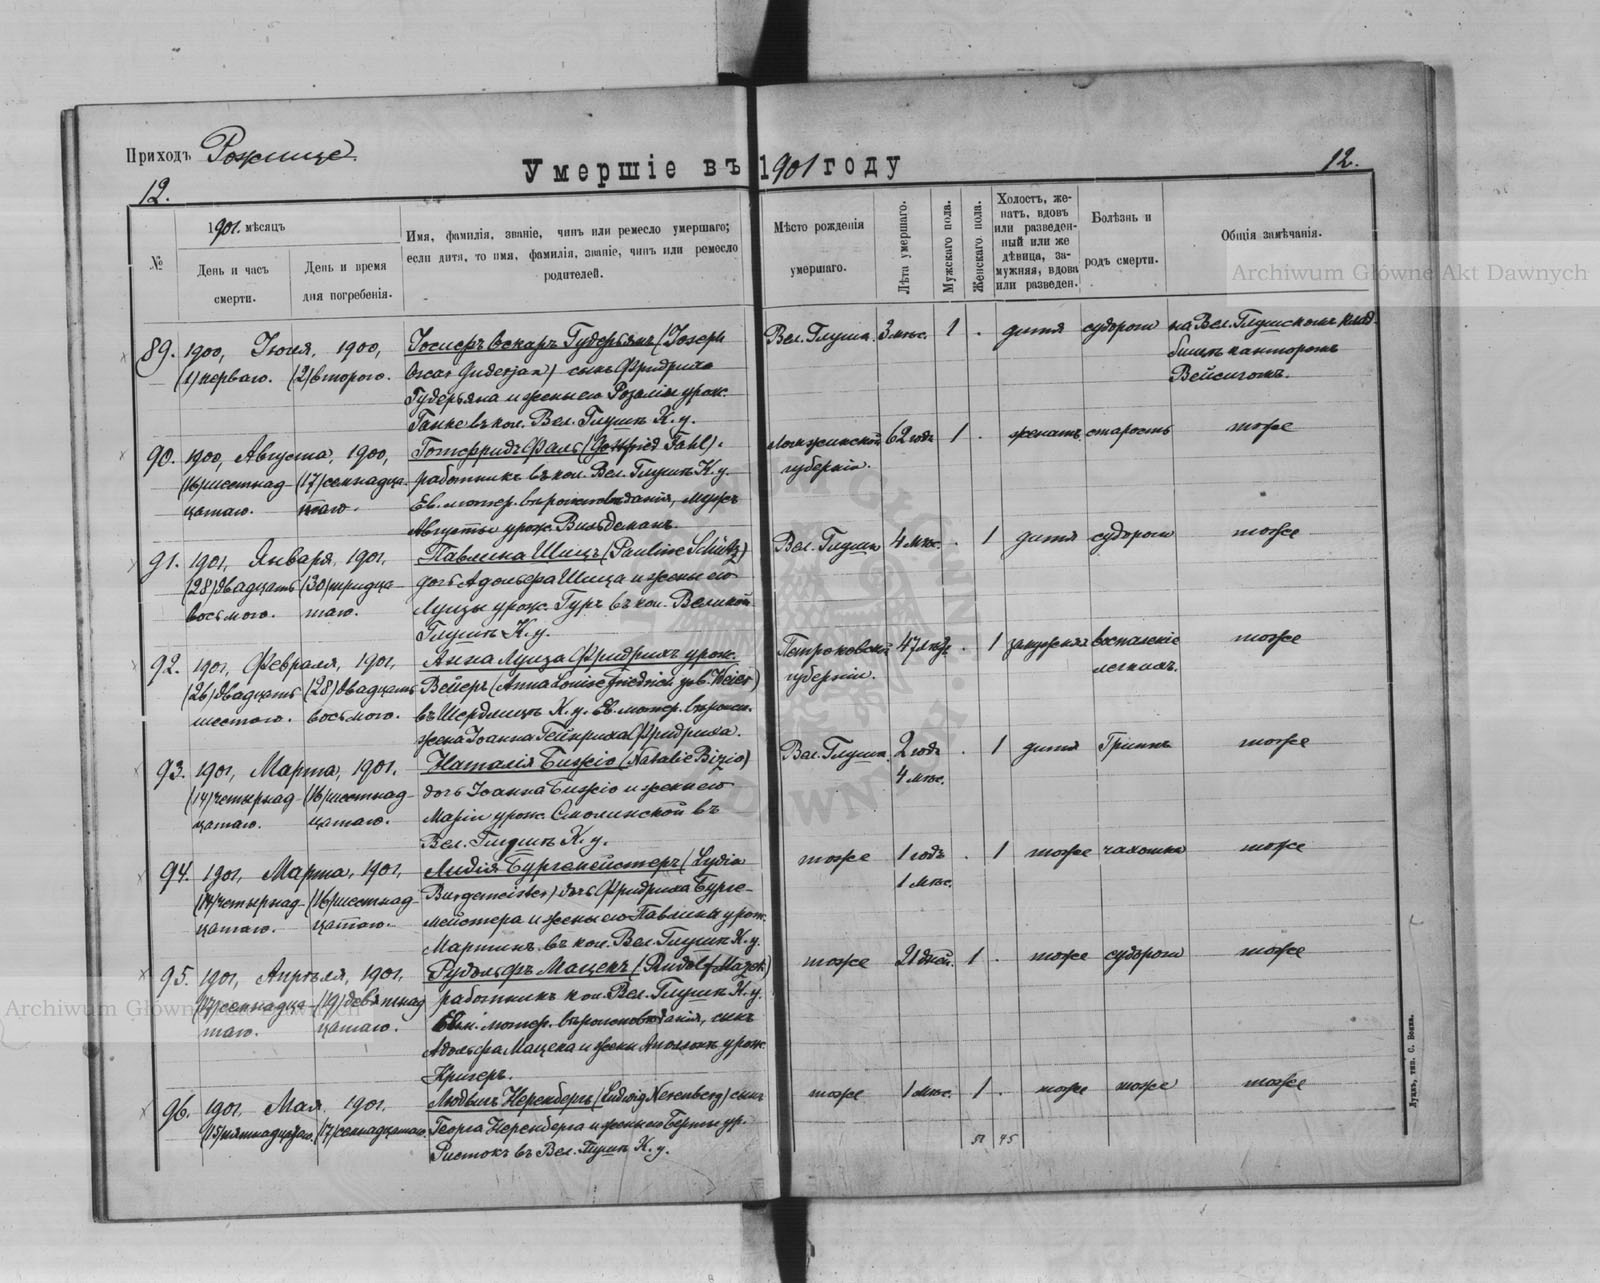 Приходъ Рожище
Умершіе въ 1901 году
12.
12.
№
1901. мѣсяцъ
День и часъ смерти.
День и время дня погребенія.
Имя, фамилія, званіе, чинъ или ремесло умершаго;
если дитя, то имя, фамилія, званіе, чинъ или ремесло
родителей.
Мѣсто рожденія
умершаго.
Лѣта умершаго.
Мужскаго пола.
Женскаго пола.
Холостъ, же-
натъ, вдовъ
или разведен-
ный или же
дѣвица, за-
мужняя, вдова
или разведен.
Болѣзнь и
родъ смерти.
Общія замѣчанія.
89. 1900, Іюля, 1900,
(1) перваго. (2) второго.
Іосифъ Оскаръ Гудерьянъ (Joseph
Oscar Guderjan) сынъ Фридриха
Гудерьяна и жены его Розаліи урож.
Ганке въ кол. Вел. Глушѣ К. у.
Вел. Глуша 3 мѣс. 1 . дитя судороги на Вел. Глушскомъ клад-
бищѣ канторомъ
Вейсигомъ.
90. 1900, Августа, 1900,
(16) шестнад- (17) семнадца-
цатаго. таго.
Готфридъ Фаль (Gottfried Fahl).
работникъ въ кол. Вел. Глушѣ К. у.
Ев. лютер. вѣроисповѣданія, мужъ
Августы урож. Вильдеманъ.
Ломжинской 62 годъ 1 . женатъ старость тоже
губерніи.
91. 1901, Января, 1901,
(28) двадцать (30) тридца-
восьмого. таго.
Павлина Шицъ (Pauline Schütz)
дочь Адольфа Шица и жены его
Луизы урож. Гуръ въ кол. Великой
Глушѣ К. у.
Вел. Глуша 4 мѣс. . 1 дитя судороги тоже
92. 1901, Февраля, 1901,
(26) двадцать (28) двадцать
шестого. восьмого.
Анна Луиза Фридрихъ урож.
Вейеръ (Anna Louise Friedrich geb. Weier)
въ К. у. Ев. лютер. вѣроисп.
жена Іоанна Гейнриха Фридриха.
Петроковской 47 . 1 замужняя воспаленіе тоже
губерніи. легкихъ.
93. 1901, Марта, 1901.
(14) четырнад- (16) шестнад-
цатаго. цатаго.
Наталія Бизіо (Natalie Bizio)
дочь Іоанна Бизіо и жены его
Маріи урож. Смолинской въ
Вел. Глушѣ К. у.
Вел. Глуша 2 годъ . 1 дитя Гриппъ тоже
4 мѣс.
94. 1901, Марта, 1901,
(14) четырнад- (16) шестнад-
цатаго. цатаго.
Лидія Бургемейстеръ (Lydia
Burgemeister) дочь Фридриха Бурге-
мейстера и жены его Павлины урож.
Мартинъ въ кол. Вел. Глушѣ К. у.
тоже 1 годъ . 1 тоже чахотка тоже
1 мѣс.
95. 1901, Апрѣля, 1901,
(17) семнадца- (19) девятнад
таго. цатаго.
Рудольфъ Мацекъ (Rudolf Mazek)
работникъ кол. Вел. Глушѣ К. у.
лютер. вѣроисповѣданія, сынъ
Адольфа Мацека и жены урож.
Кригеръ.
тоже 21 дней. 1 . тоже судороги тоже
96. 1901, Мая, 1901,
(15) пятнадцатаго. (17) семнадцатаго.
Людвигъ Неренбергъ (Ludwig Nerenberg) сынъ
Георга Неренберга и жены его Берты ур.
Ристокъ въ Вел. Глушѣ К. у.
тоже 1 мѣс. 1 . тоже тоже тоже
51 45
Луцкъ, тип. С. Бокза.
Archiwum Główne Akt Dawnych
Archiwum Główne Akt Dawnych